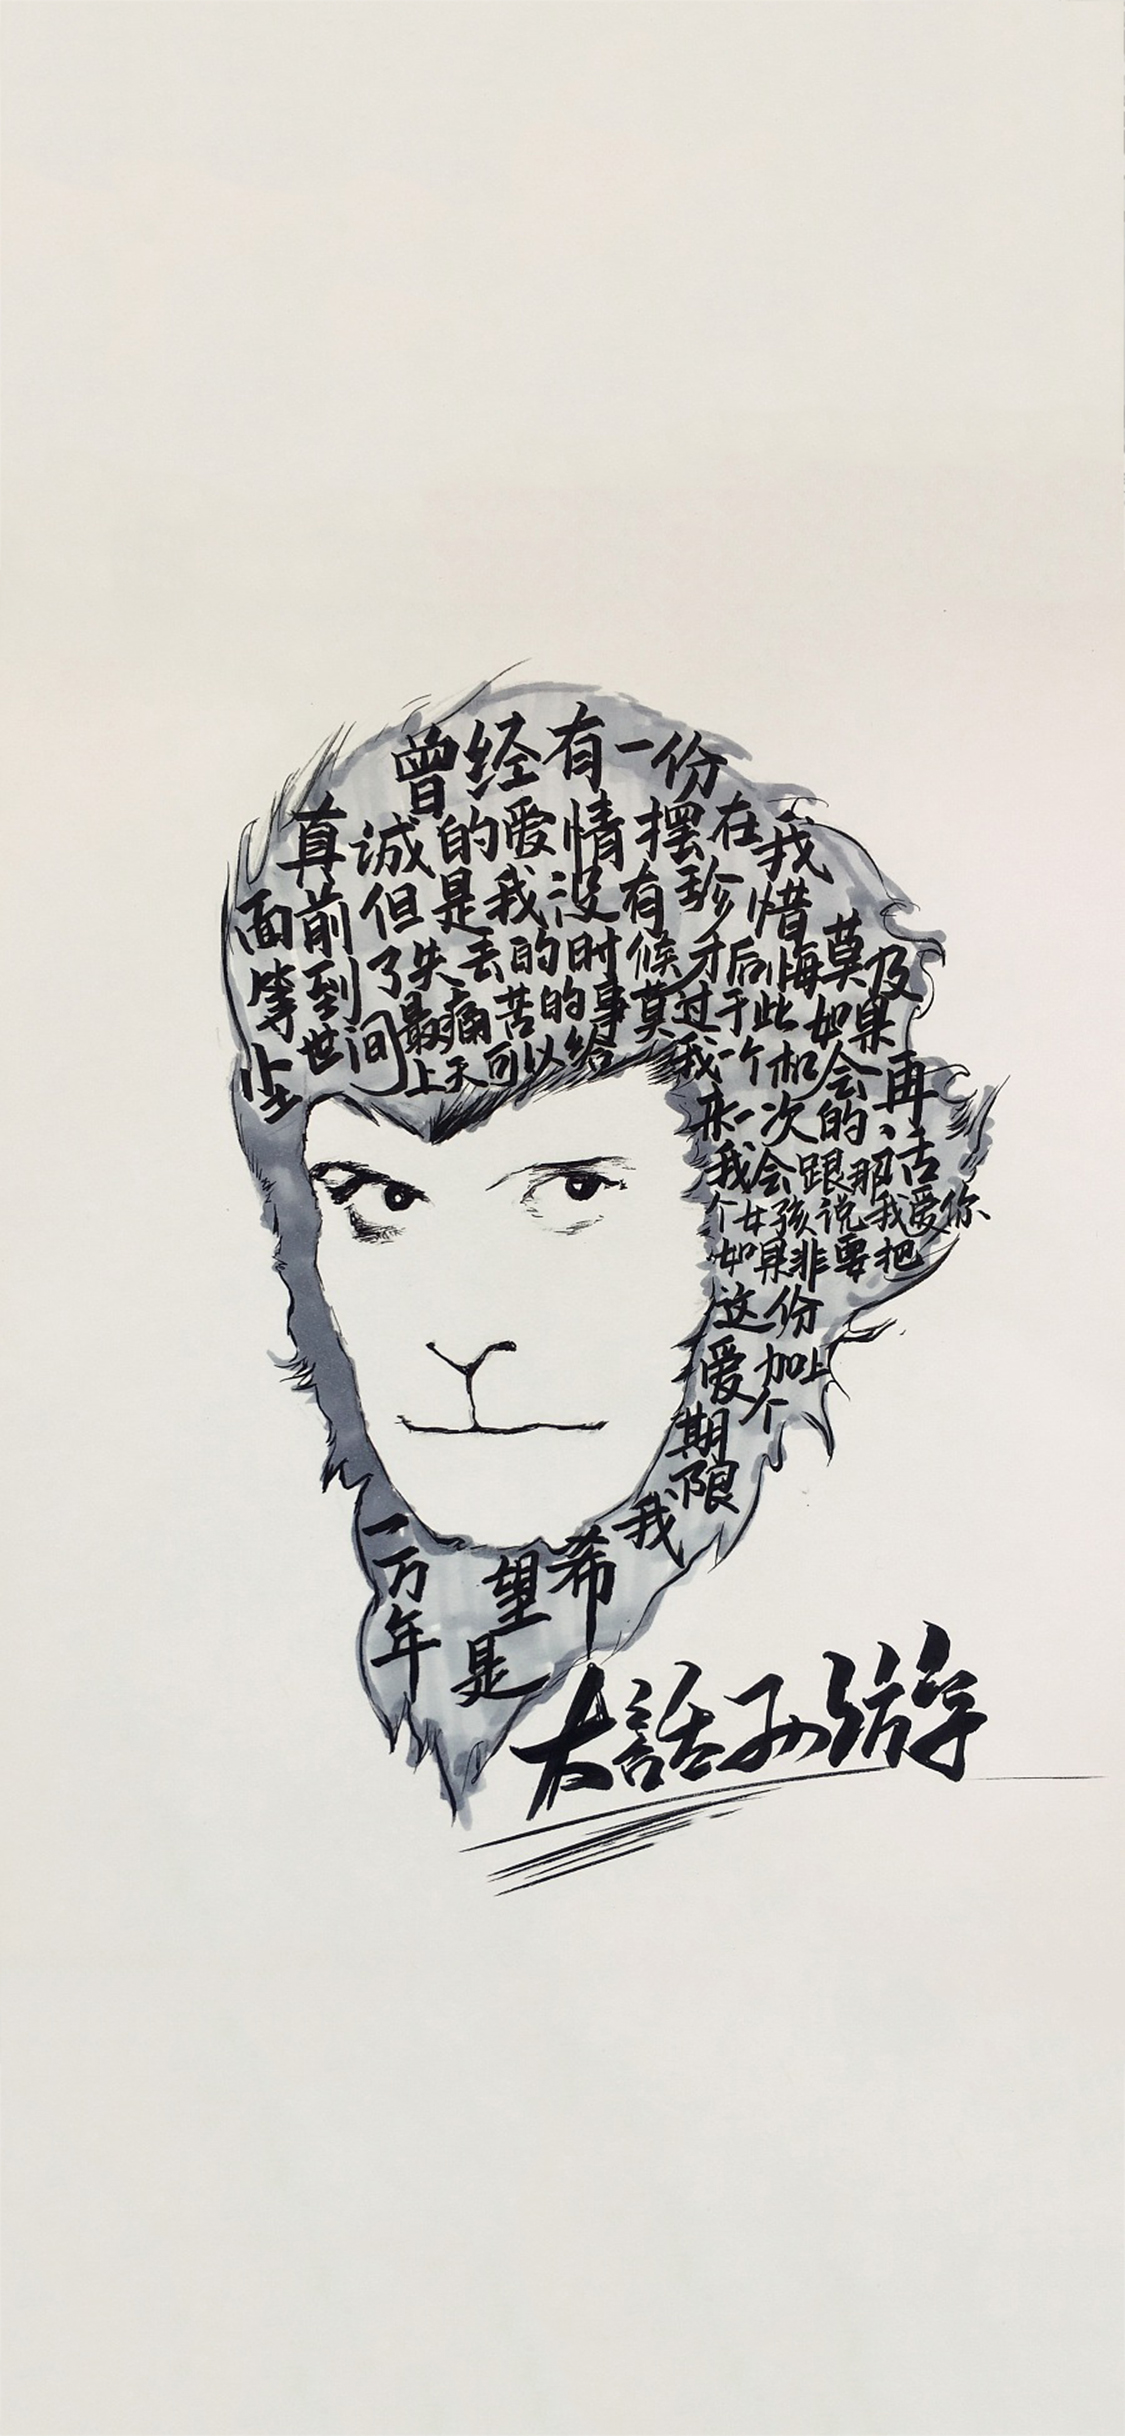 曾经有一份
真诚的爱情摆在我
面前但是我没有珍惜
等到了失去的时候才后悔莫及
尘世间最痛苦的事莫过于此如果
上天可以给我一个机会再
来一次的话
我会跟那
个女孩说我爱你
如果非要把
这份
爱加上
个
期
限
我
希
望
是
一万年
大話孙游